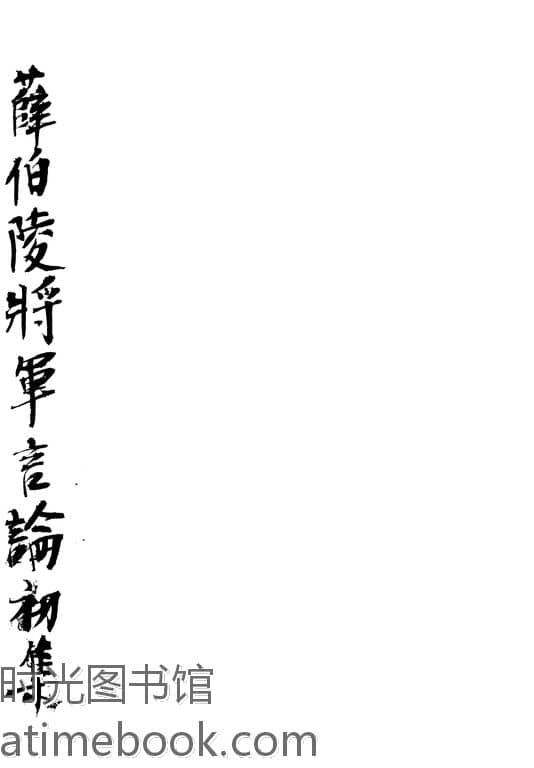 薛伯陵將軍言論初集
时光图书馆
atimebook.com